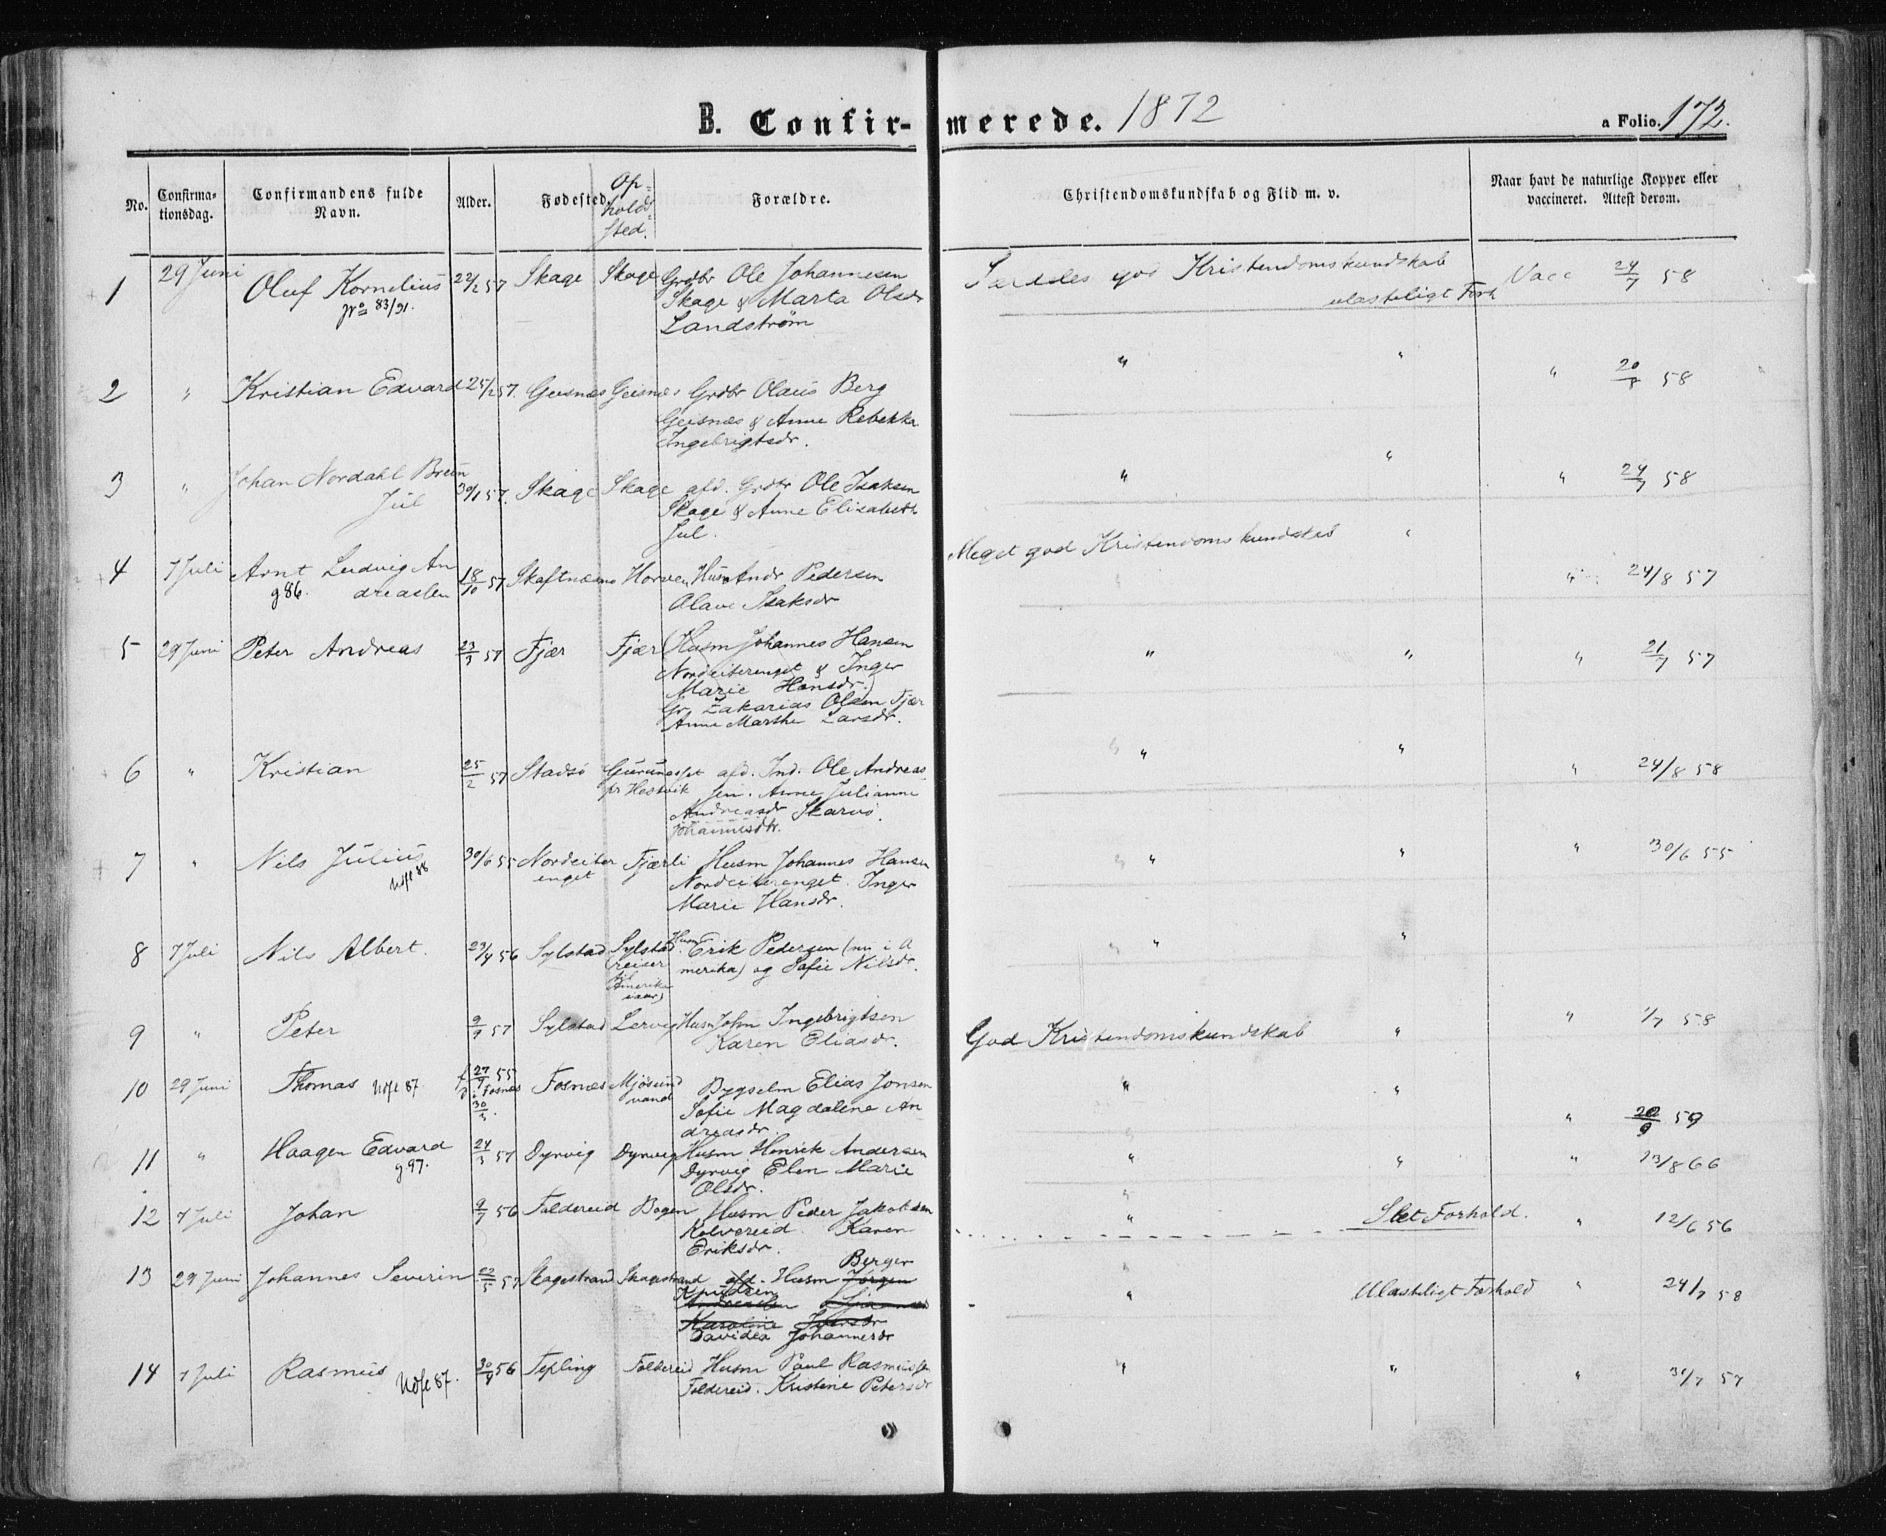 B. Confirmerede. 1872
a Folio. 172.
No. Confirmationsdag. Confirmandens fulde Navn. Alder. Fødested. Opholdssted. Forældre. Christendomskundskab og Flid m. v. Naar havt de naturlige Kopper eller vaccineret. Attest derom.
1 29 Juni Oluf Kornelius 22/2 57 Skage Skage Grdbr Ole Johannesen Særdeles god Kristendomskundskab Vacc 24/7 58
No 83/91. Skage & Marta Olsdr ulasteligt Forh
Landstrøm
2 " Kristian Edvard 25/2 57. Geisnæs Geisnæs Grdbr Olaus Berg " " " 20/8 58
Geisnæs & Anne Rebekka
Ingebrigtsdr.
3 " Johan Nordahl Brun 30/1 57. Skage Skage afd. Grdbr Ole Isaksen " " " 24/7 58
Jul Skage & Anne Elisabeth
Jul.
4 7 Juli Arnt Ludvig An 18/10 57 Skaftnæs Horven Husm Andr Pedersen Meget god Kristendomskundskab " " 24/8 57
g 86. dreassen Olave Isaksdr
5 29 Juni Peter Andreas 23/3 57 Fjær Fjær (Husm Johannes Hansen " " " 21/7 57
Nordeiterenget & Inger
Marie Hansdr.)
Gr. Zakarias Olsen Fjær
Anne Marthe Larsdr.
6 " Kristian 25/2 57 Stadsø afd. Ind. Ole Andreas " " " 24/8 58
pr Hestvik sen. Anne Julianne
Andreasdr Skarvø.
Johannesdtr.
7 " Nils Julius 30/6 55 Nordeiter Fjærli Husm Johannes Hansen " " " 30/6 55
Udfl 88 enget Nordeiterenget. Inger
Marie Hansdr.
8 7 Juli Nils Albert. 23/4 56 Sylstad Sylstad Husm Erik Pedersen (nu i A " "
(reiser merika) og Sofie Nilsdr.
til
Amerika
iaar)
9 " Peter 9/9 57 Sylstad Lervig Husm John Ingebrigtsen God Kristendomskundskab " " 1/7 58
Karen Eliasdr.
10 29 Juni Thomas Udfl 87. f. 27/1 55 Fosnæs Mjøsund Bygselm Elias Jonsen " " " 20/9 59
i Fosnæs vand Sofie Magdalene An
30/3. dreasdr.
11 " Haagen Edvard 24/3 57 Dyrvig Dyrvig Husm Henrik Andersen " " " 13/8 66
g 97. Dyrvig Elen Marie
Olsdr.
12 7 Juli Johan 9/7 56 Foldereid Bogen Husm Peder Jakobsen " Slet Forhold. " 12/6 56
Kolvereid Karen
Eriksdr.
13 29 Juni Johannes Severin 22/5 57 Skagestrand Skagestrand afd. Husm Jørgen Berger " Ulasteligt Forhold " 24/7 58
Knudsen
Andreassen
Karoline Iversdr
Davidea Johannesdr
14 7 Juli Rasmus Udfl 87. 30/9 56 Tepling Foldereid Husm Paul Rasmussen " " " 31/7 57
Foldereid. Kristine Petersdr